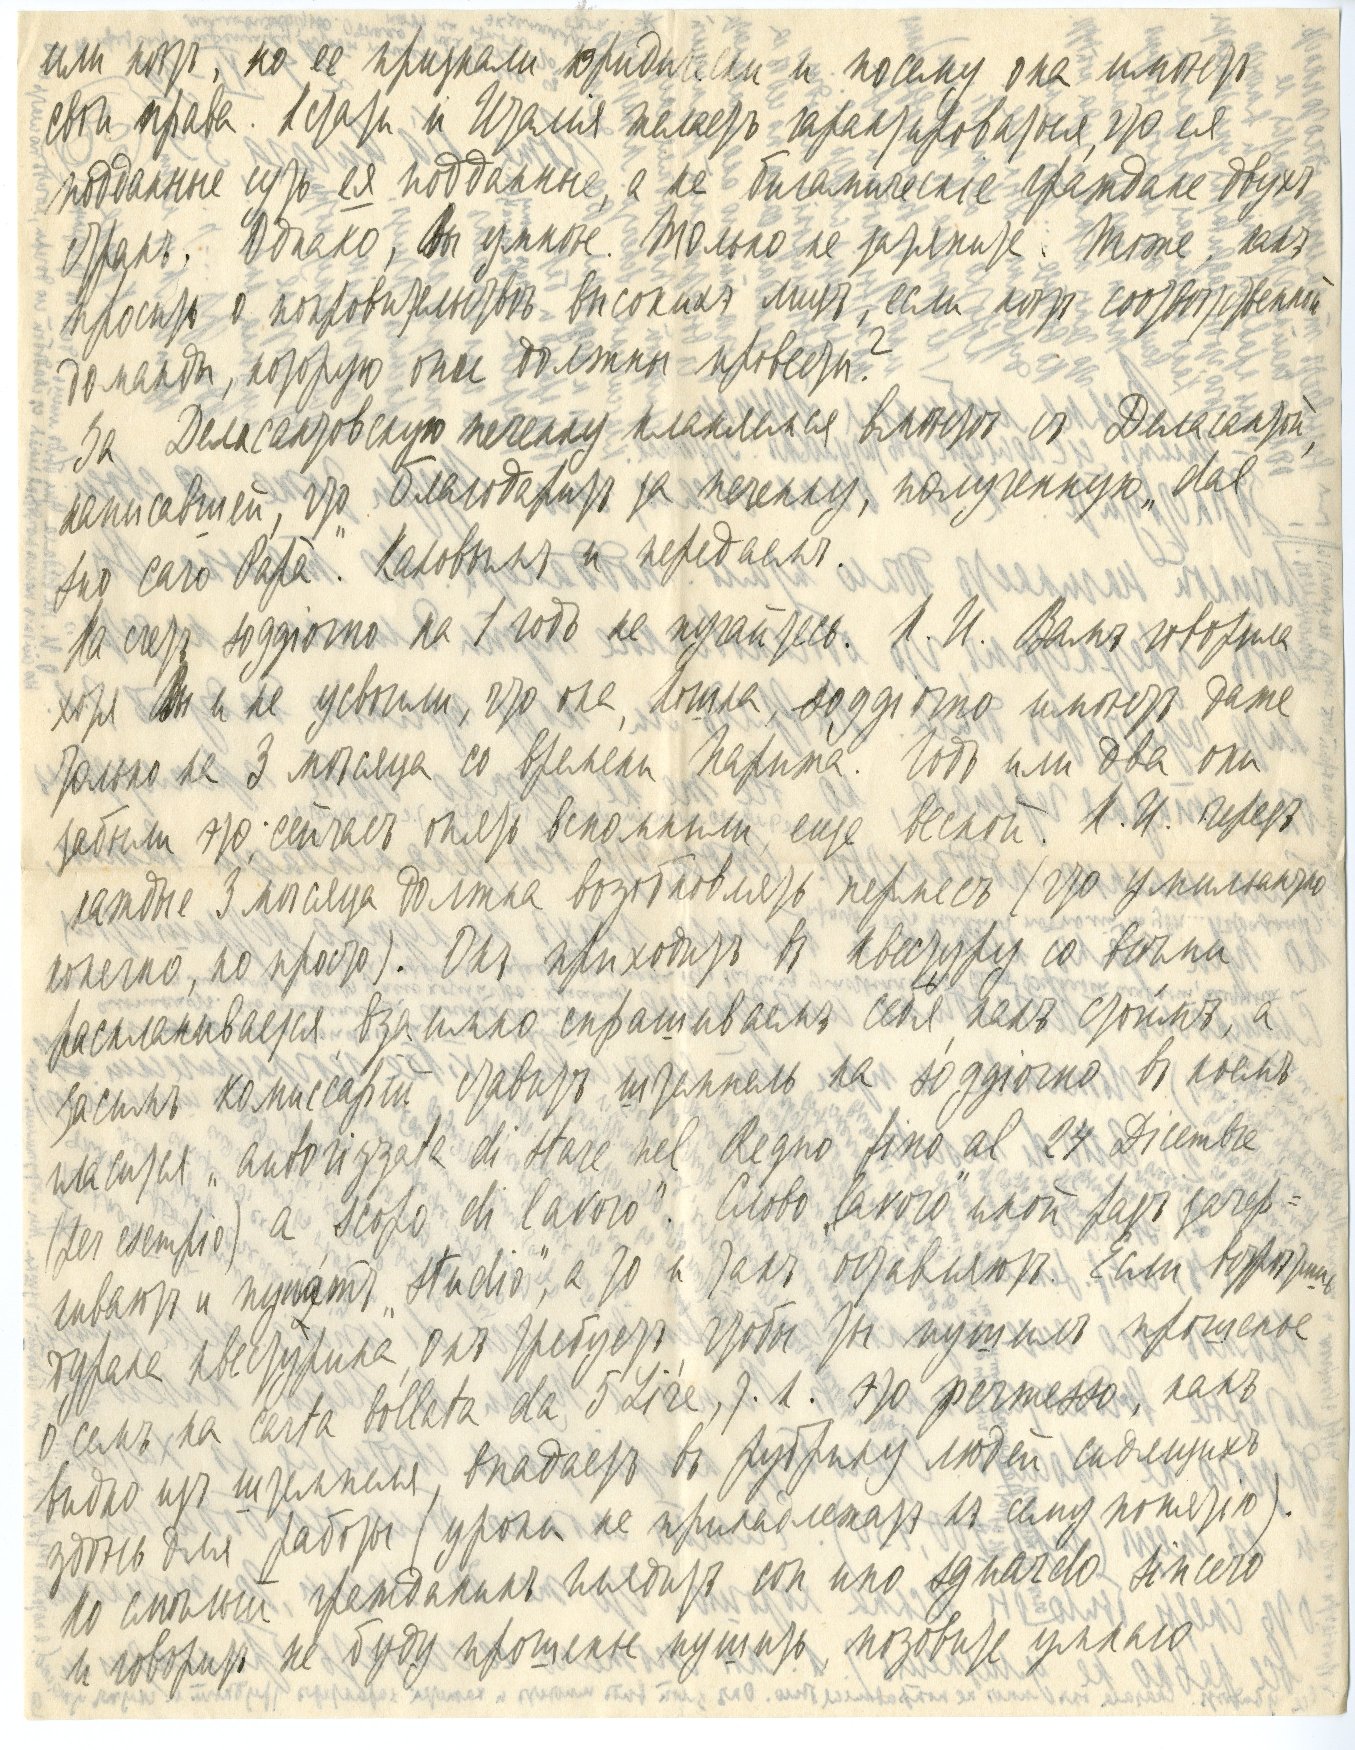 или нѣтъ, но ее признали юридически и посему она имѣетъ
свои права. Кстати и Италія желаетъ гарантироваться, что ея
подданные суть ея подданные, а не бигамическіе граждане двухъ
странъ. Однако, Вы умнѣе. Только не затяните. Тоже, какъ
просить о покровительствѣ высокихъ лицъ, если нѣтъ соотвѣтственной
доманды, которую они должны провести?
За Деласантовскую печенку кланяемся вмѣстѣ съ Деласантой,
написавшей, что благодаритъ за печенку, полученную „dal
suo caro Papà“. Каковымъ и передаемъ.
На счетъ soggiorno на 1 годъ не пугайтесь. Л. И. Вамъ говорила
хотя Вы и не усвоили, что она, кошка, soggiorno имѣетъ даже
только на 3 мѣсяца со времени Парижа. Годъ или два они
забыли это, сейчасъ опять вспомнили, еще весной. Л. И. черезъ
каждые 3 мѣсяца должна возобновлять пермессъ (что умилительно
конечно, но просто). Онъ приходитъ въ квестуру со всѣми
раскланивается, взаимно спрашиваемъ себя, какъ стоимъ, а
засимъ комиссарій ставитъ штемпель на soggiorno въ коемъ
гласится „autorizzata di stare nel Regno fino al 24 Dicembre
(per esempio) a scopo di lavoro“. Слово „lavoro“ иной разъ зачер=
киваютъ и пишутъ „studio“, а то и такъ оставляютъ. Если встрѣтишь
дурака квестурина, онъ требуетъ, чтобы ты пушилъ прошенье
о семъ на carta bollata da 5 Lire, т. к. это permesso, какъ
видно изъ штемпеля, впадаетъ въ рубрику людей сидящихъ
здѣсь для работы (уроки не принадлежатъ къ сему понятію).
Но смѣлый гражданинъ глядитъ con uno sguardo sincero
и говоритъ не буду прошенье пушить, позовите умнаго